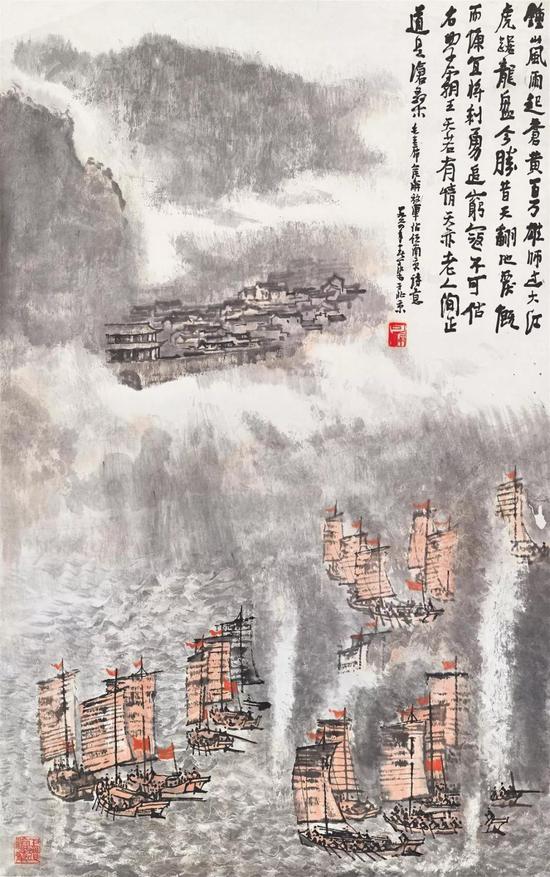 鍾山風雨起蒼黄百万雄师过大江
虎踞龍盘今勝昔天翻地覆慨
而慷宜将剩勇追窮寇不可沽
名学霸王天若有情天亦老人间正
道是滄桑 毛主席人民解放軍佔领南京诗意
一九六四年於北京